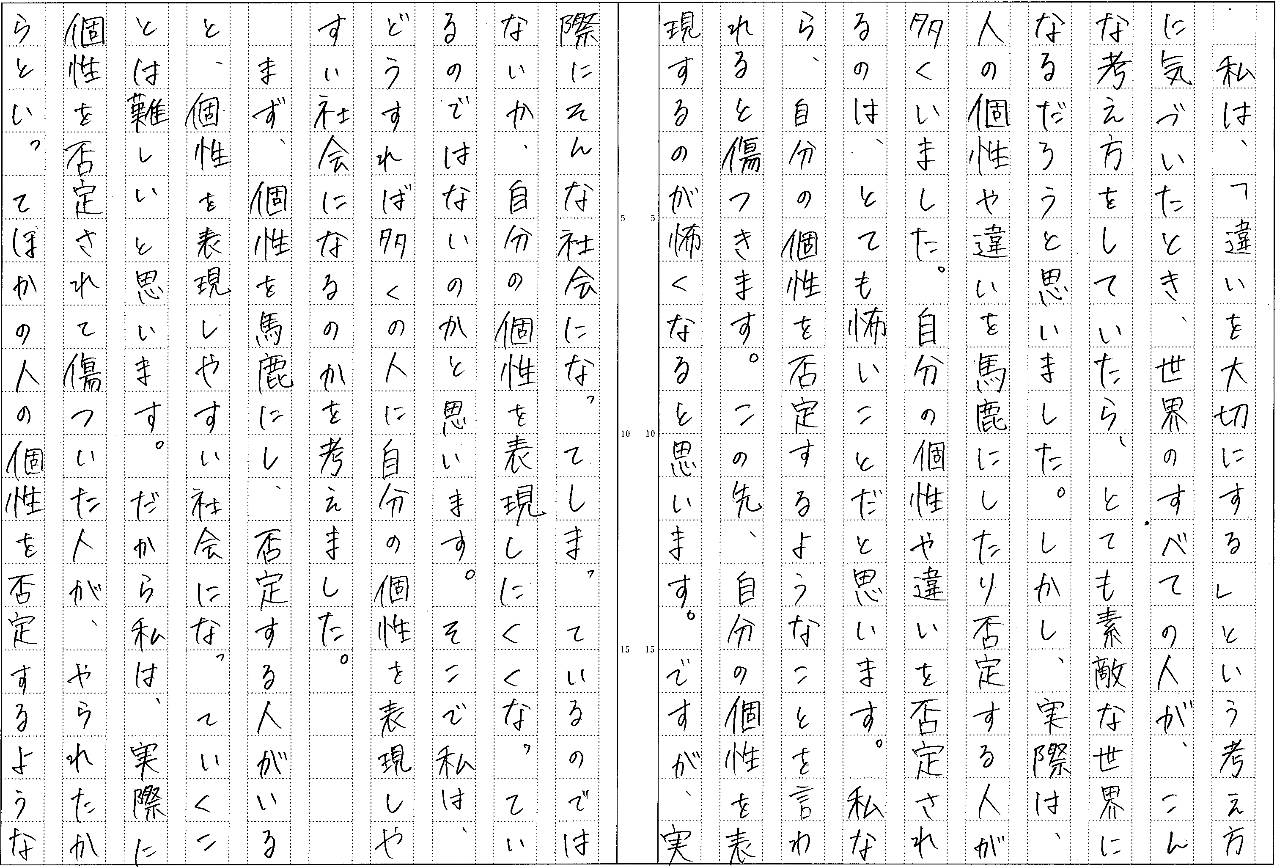 私は、「違いを大切にする」という考え方
に気づいたとき、世界のすべての人が、こん
な考え方をしていたら、とても素敵な世界に
なるだろうと思いました。しかし、実際は、
人の個性や違いを馬鹿にしたり否定する人が
多くいました。自分の個性や違いを否定され
るのは、とても怖いことだと思います。私な
ら、自分の個性を否定するようなことを言わ
れると傷つきます。この先、自分の個性を表
現するのが怖くなると思います。ですが、実
際にそんな社会になってしまっているのでは
ないか、自分の個性を表現しにくくなってい
るのではないのかと思います。そこで私は、
どうすれば多くの人に自分の個性を表現しや
すい社会になるのかを考えました。
まず、個性を馬鹿にし、否定する人がいる
と、個性を表現しやすい社会になっていくこ
とは難しいと思います。だから私は、実際に
個性を否定されて傷ついた人が、やられたか
らといってほかの人の個性を否定するような
5
5
10
10
15
15